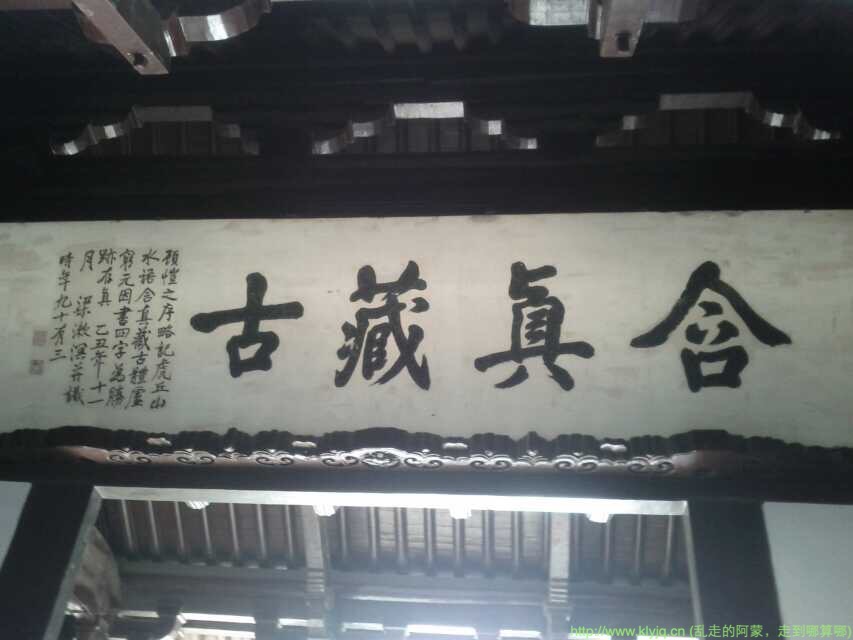 含真藏古
顧愷之序略記虎丘山
水語含真藏古體虛
窮元因書四字為勝
跡存真 乙丑年十一
月 梁漱溟并識
時年九十有三
http://www.klyig.cn (乱走的阿蒙，走到哪算哪)